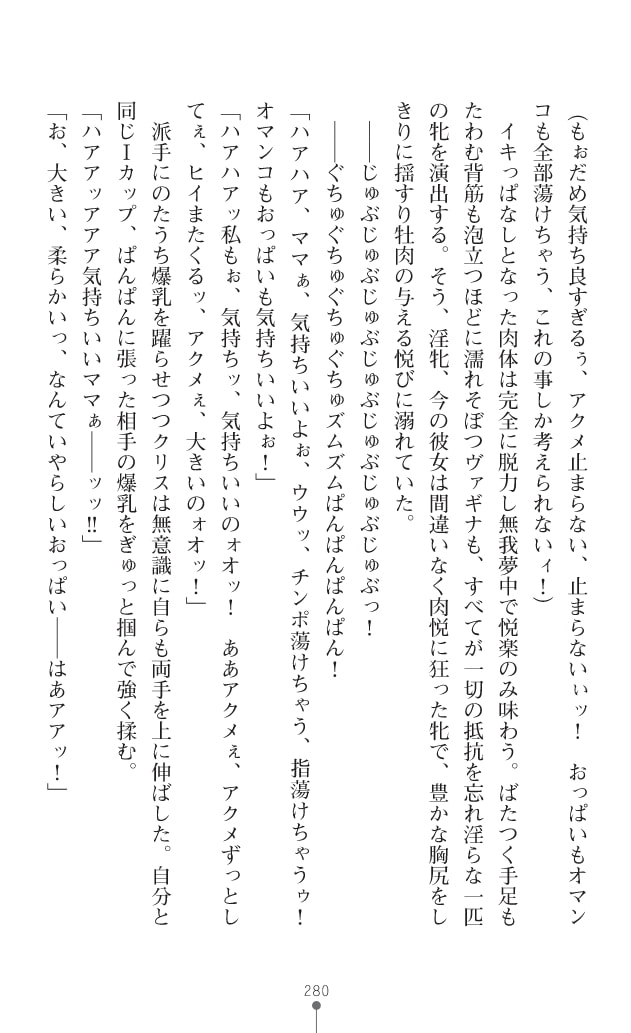 (もぉだめ気持ち良すぎるぅ、アクメ止まらない、止まらないぃッ！　おっぱいもオマン
コも全部蕩けちゃう、これの事しか考えられないィ！)
　イキっぱなしとなった肉体は完全に脱力し無我夢中で悦楽のみ味わう。ばたつく手足も
たわむ背筋も泡立つほどに濡れそぼつヴァギナも、すべてが一切の抵抗を忘れ淫らな一匹
の牝を演出する。そう、淫牝、今の彼女は間違いなく肉悦に狂った牝で、豊かな胸尻をし
きりに揺すり牡肉の与える悦びに溺れていた。
　――じゅぶじゅぶじゅぶじゅぶじゅぶじゅぶっ！
　――ぐちゅぐちゅぐちゅぐちゅズムズムぱんぱんぱんぱん！
「ハアハア、ママぁ、気持ちいいよぉ、ウウッ、チンポ蕩けちゃう、指蕩けちゃうゥ！
オマンコもおっぱいも気持ちいいよぉ！」
「ハアハアッ私もぉ、気持ちッ、気持ちいいのォオッ！　ああアクメぇ、アクメずっとし
てぇ、ヒイまたくるッ、アクメぇ、大きいのォオッ！」
　派手にのたうち爆乳を躍らせつつクリスは無意識に自らも両手を上に伸ばした。自分と
同じＩカップ、ぱんぱんに張った相手の爆乳をぎゅっと掴んで強く揉む。
「ハアアッアアア気持ちいいママぁ――ッッ!!」
「お、大きい、柔らかいっ、なんていやらしいおっぱい――はあアアッ！」
280